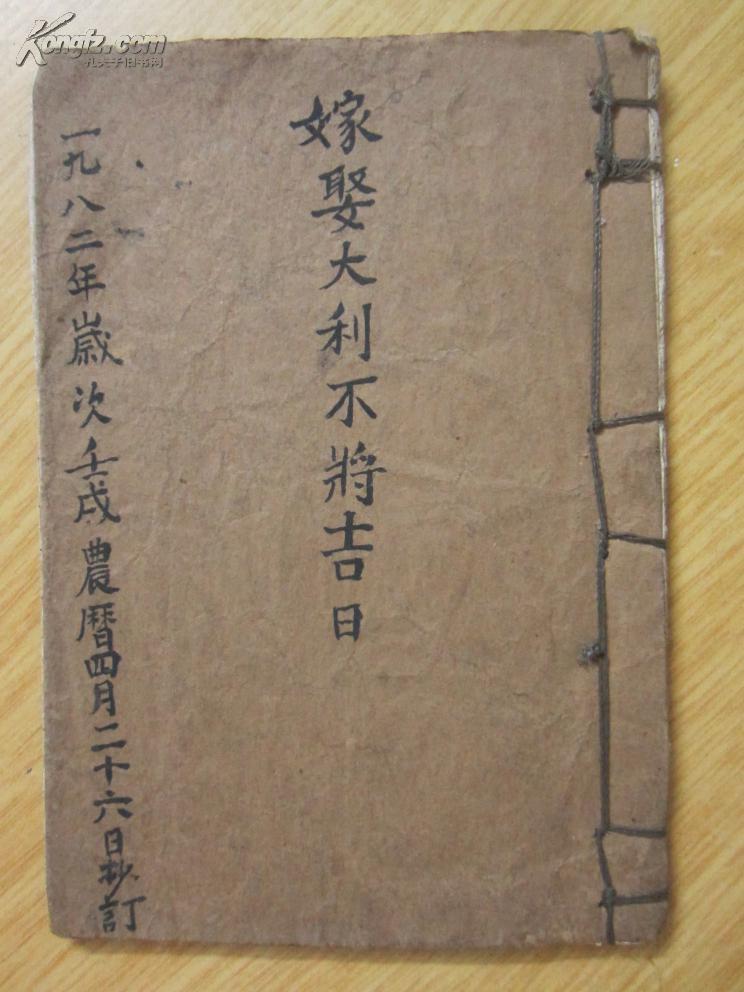 嫁娶大利不將吉日
一九八二年歲次壬戌農曆四月二十六日抄訂
Kongfz.com
孔夫子旧书网